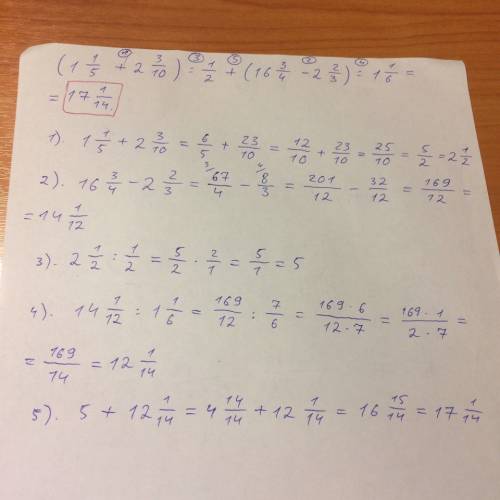 (1 1/5 + 2 3/10) : 1/2 + (16 3/4 - 2 2/3) : 1 1/6 =
= 17 1/14.
1). 1 1/5 + 2 3/10 = 6/5 + 23/10 = 12/10 + 23/10 = 25/10 = 5/2 = 2 1/2
2). 16 3/4 - 2 2/3 = 67/4 - 8/3 = 201/12 - 32/12 = 169/12 =
= 14 1/12
3). 2 1/2 : 1/2 = 5/2 · 2/1 = 5/1 = 5
4). 14 1/12 : 1 1/6 = 169/12 : 7/6 = 169·6/12·7 = 169·1/2·7 =
= 169/14 = 12 1/14
5). 5 + 12 1/14 = 4 14/14 + 12 1/14 = 16 15/14 = 17 1/14